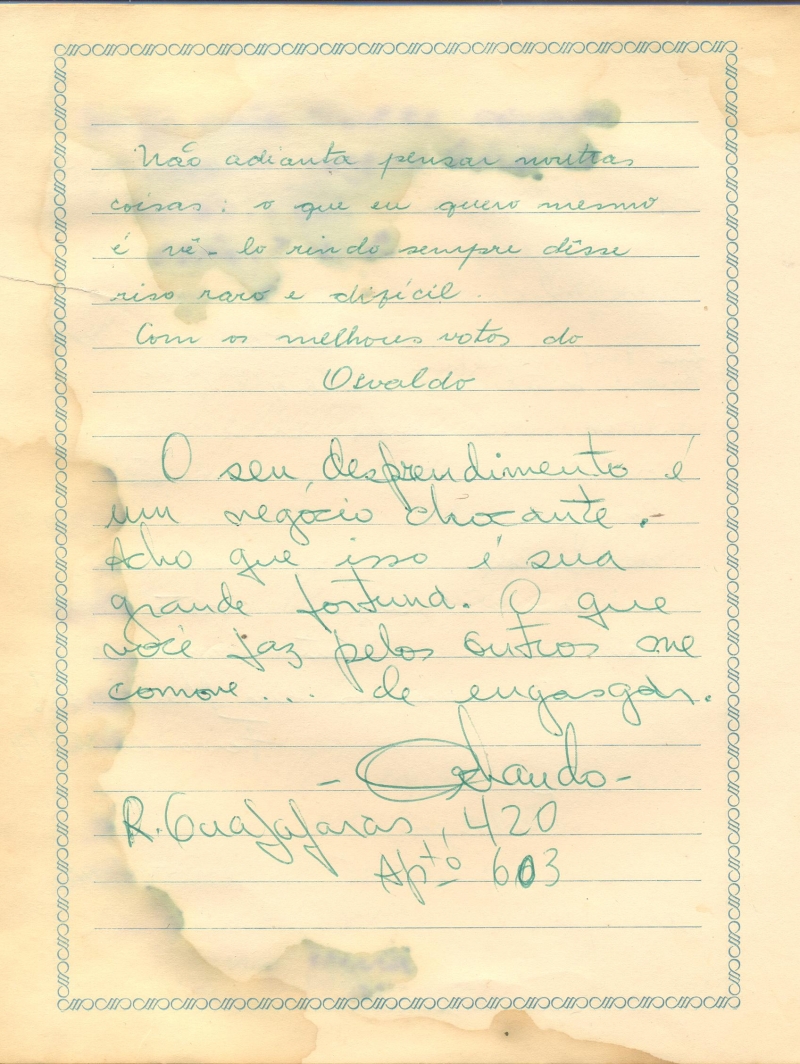 Não adianta pensar noutras
coisas: o que eu quero mesmo
é vê-lo rindo sempre dêsse
riso raro e difícil.
Com os melhores votos do
Osvaldo
O seu desprendimento é
um negócio chocante.
Acho que isso é sua
grande fortuna. O que
você faz pelos outros me
comove... de engasgar.
- Orlando -
R. Guajajaras, 420
Aptº 603